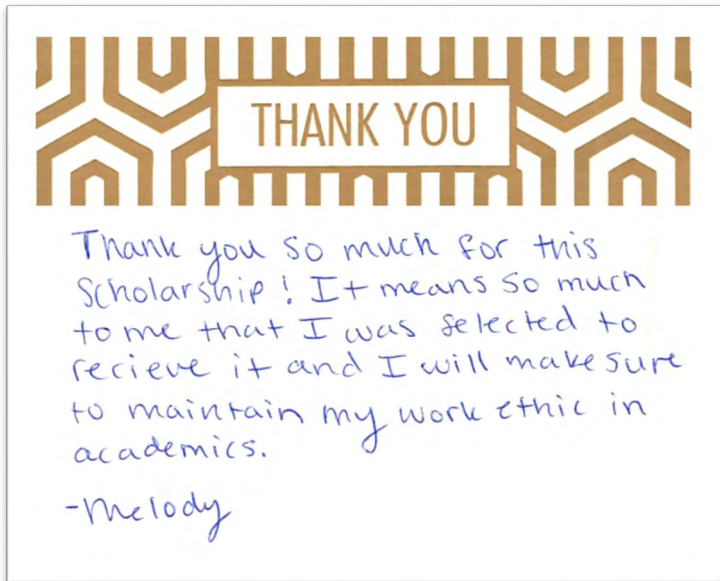 THANK YOU
Thank you so much for this
Scholarship! It means so much
to me that I was selected to
recieve it and I will make sure
to maintain my work ethic in
academics.
-Melody